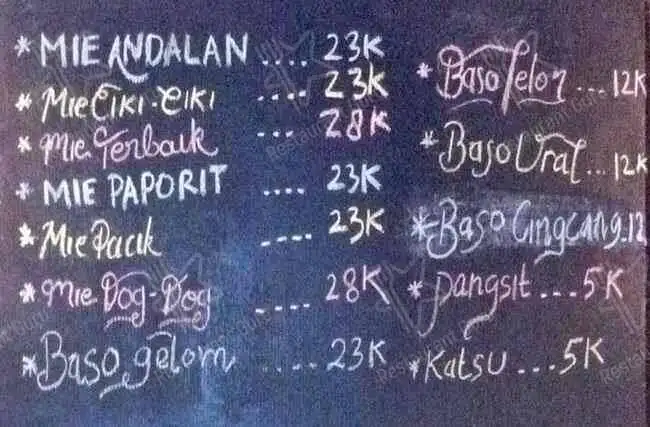 * MIE ANDALAN .... 23K
* Mie Ciki-Ciki .... 23K
* Mie Terbaik ... 28K
* MIE PAPORIT .... 23K
* Mie Pacik .... 23K
* Mie Dog-Dog .... 28K
* Baso gelom .... 23K
* Baso Telor ... 12K
* Baso Urat ... 12K
* Baso Cingcang..12
* Pangsit ... 5K
* Katsu ... 5K